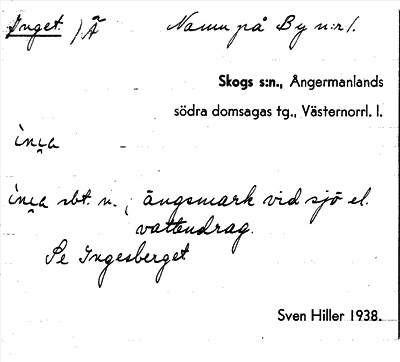 Inget. ) Ä Namn på By n:r 1.
Skogs s:n., Ångermanlands
södra domsagas tg., Västernorrl. l.
ìn̯a
ìn̯a sbt. n., ängsmark vid sjö el.
vattendrag.
Se Ingesberget
Sven Hiller 1938.